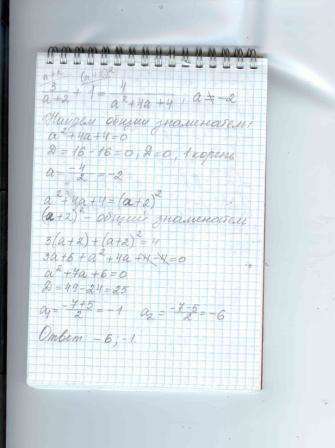 a+2 (a+2)²
3/(a+2) + 1 = 4/(a²+4a+4), a ≠ -2
Найдем общий знаменатель:
a²+4a+4=0
D=16-16=0, D=0, 1 корень
a=-4/2=-2
a²+4a+4=(a+2)²
(a+2)² - общий знаменатель
3(a+2)+(a+2)²=4
3a+6+a²+4a+4-4=0
a²+7a+6=0
D=49-24=25
a₁=(-7+5)/2=-1 a₂=(-7-5)/2=-6
Ответ: -6; -1.